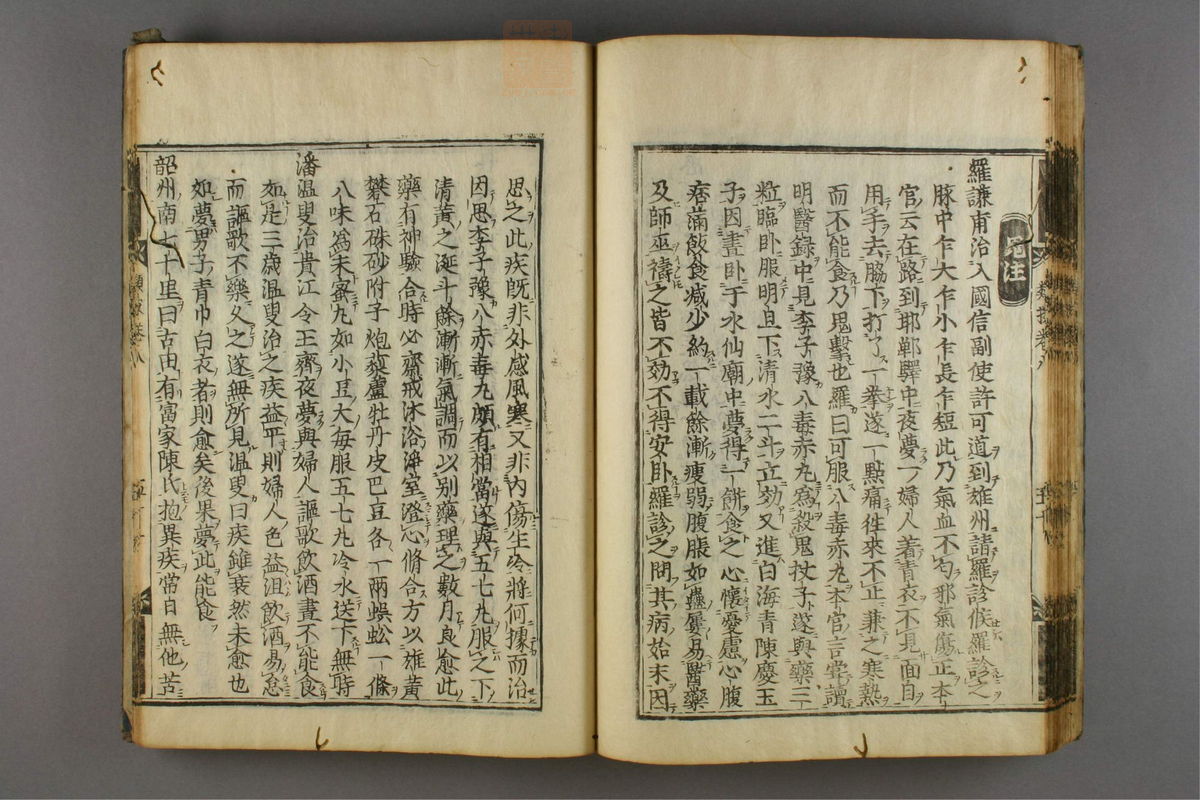 鬼注
羅謙甫治入國信副使許可道到雄州請羅診候羅診之
脉中乍大乍小乍長乍短此乃氣血不匀邪氣傷正本
官云在路到邯鄲驛中夜夢一婦人着青衣不見面自
用手去脇下打了一拳遂一點痛徃來不正兼之寒熱
而不能食乃鬼擊也羅曰可服八毒赤丸本官言嘗讀
明醫錄中見李子豫八毒赤丸爲殺鬼杖子遂與藥三
粒臨卧服明旦下清水二斗立効又進白海青陳慶玉
子因晝卧于水仙廟中夢得一餅食之心懷憂慮心腹
痞滿飲食減少約一載餘漸瘦弱腹脹如蠱屢易醫藥
及師巫禱之皆不効不得安卧羅診之問其病始末因
思之此疾旣非外感風寒又非内傷生冷將何據而治
因思李子豫八赤毒丸頗有相當遂與五七丸服之下
清黃之涎斗餘漸漸氣調而以别藥理之數月良愈此
藥有神驗合時必齋戒沐浴淨室澄心脩合方以雄黃
礬石硃砂附子炮藜蘆牡丹皮巴豆各一兩蜈蚣一條
八味爲末蜜丸如小豆大每服五七丸冷水送下無時
潘温叟治貴江令王齊夜夢與婦人謳歌飲酒晝不能食
如是三歲温叟治之疾益平則婦人色益沮飲酒易怠
而謳歌不樂久之遂無所見温叟曰疾雖衰然未愈也
如夢男子青巾白衣者則愈矣後果夢此能食
韶州南七十里曰古田有富家陳氏抱異疾常日無他苦